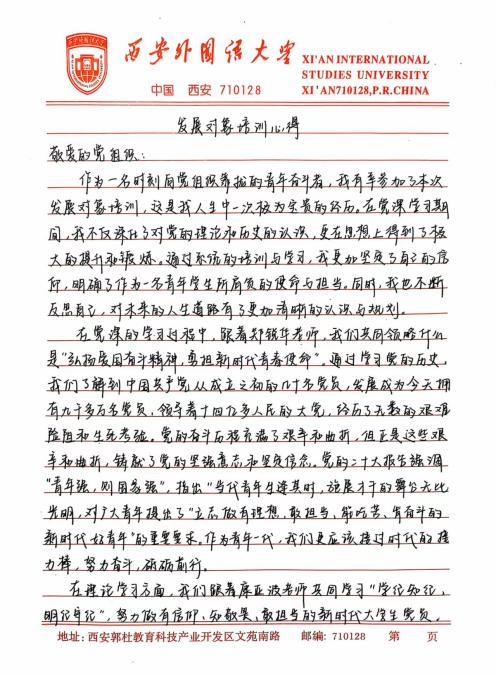 西安外国语大学
中国 西安 710128
XI'AN INTERNATIONAL
STUDIES UNIVERSITY
XI'AN710128,P.R.CHINA
发展对象培训心得
敬爱的党组织：
作为一名时刻向党组织靠拢的青年奋斗者，我有幸参加了本次
发展对象培训，这是我人生中一次极为宝贵的经历。在党课学习期
间，我不仅深化了对党的理论和历史的认识，更在思想上得到了极
大的提升和锻炼。通过系统的培训与学习，我更加坚定了自己的信
仰，明确了作为一名青年学生所肩负的使命与担当。同时，我也不断
反思自己，对未来的人生道路有了更加清晰的认识与规划。
在党课的学习过程中，跟着郑锐华老师，我们共同领略什么
是“弘扬爱国奋斗精神，勇担新时代青春使命”。通过学习党的历史，
我们了解到中国共产党从成立之初的几十名党员，发展成为今天拥
有九千多万名党员、领导着十四亿多人民的大党，经历了无数的艰难
险阻和生死考验。党的奋斗历程充满了艰辛和曲折，但正是这些艰
辛和曲折，铸就了党的坚强意志和坚定信念。党的二十大报告强调
“青年强，则国家强”，指出“当代青年生逢其时，施展才干的舞台无比
光明，对广大青年提出了“立志做有理想、敢担当、能吃苦、肯奋斗的
新时代好青年”的重要要求。作为青年一代，我们更应该接过时代的接
力棒，努力奋斗，砥砺前行。
在理论学习方面，我们跟着席亚波老师共同学习“学纪知纪、
明纪守纪”，努力做有信仰、知敬畏、敢担当的新时代大学生党员。
地址: 西安郭杜教育科技产业开发区文苑南路 邮编: 710128 第 页